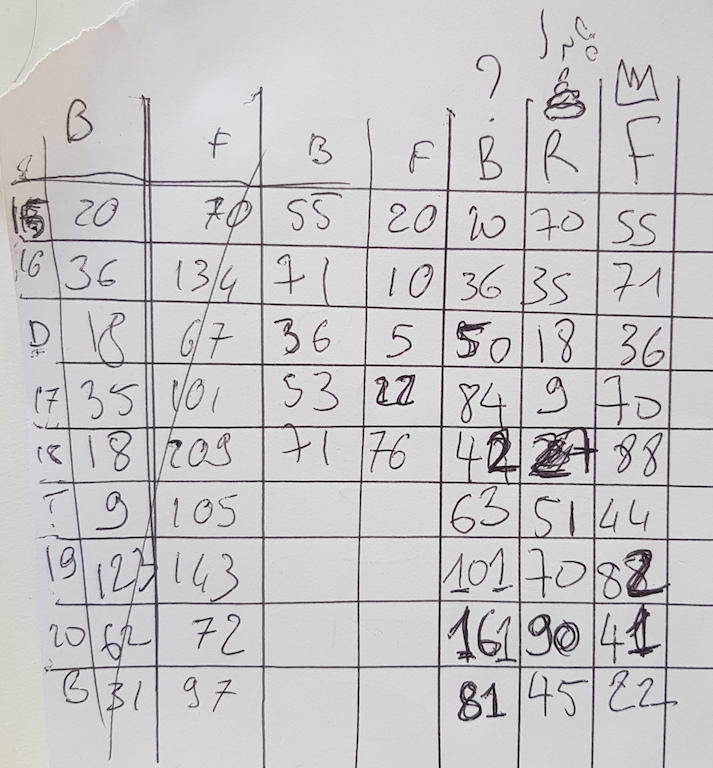 ?
B F B F B R F
15 20 70 55 20 20 70 55
16 36 134 71 10 36 35 71
D 18 67 36 5 50 18 36
17 35 101 53 22 84 9 70
18 18 209 71 76 42 27 88
T 9 105 63 51 44
19 123 143 101 70 82
20 62 72 161 90 41
B 31 97 81 45 22